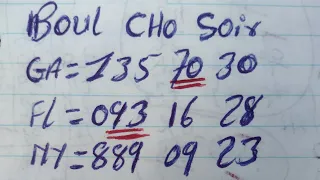 BOUL CHO Soir
GA=135 70 30
FL=093 16 28
NY=889 09 23